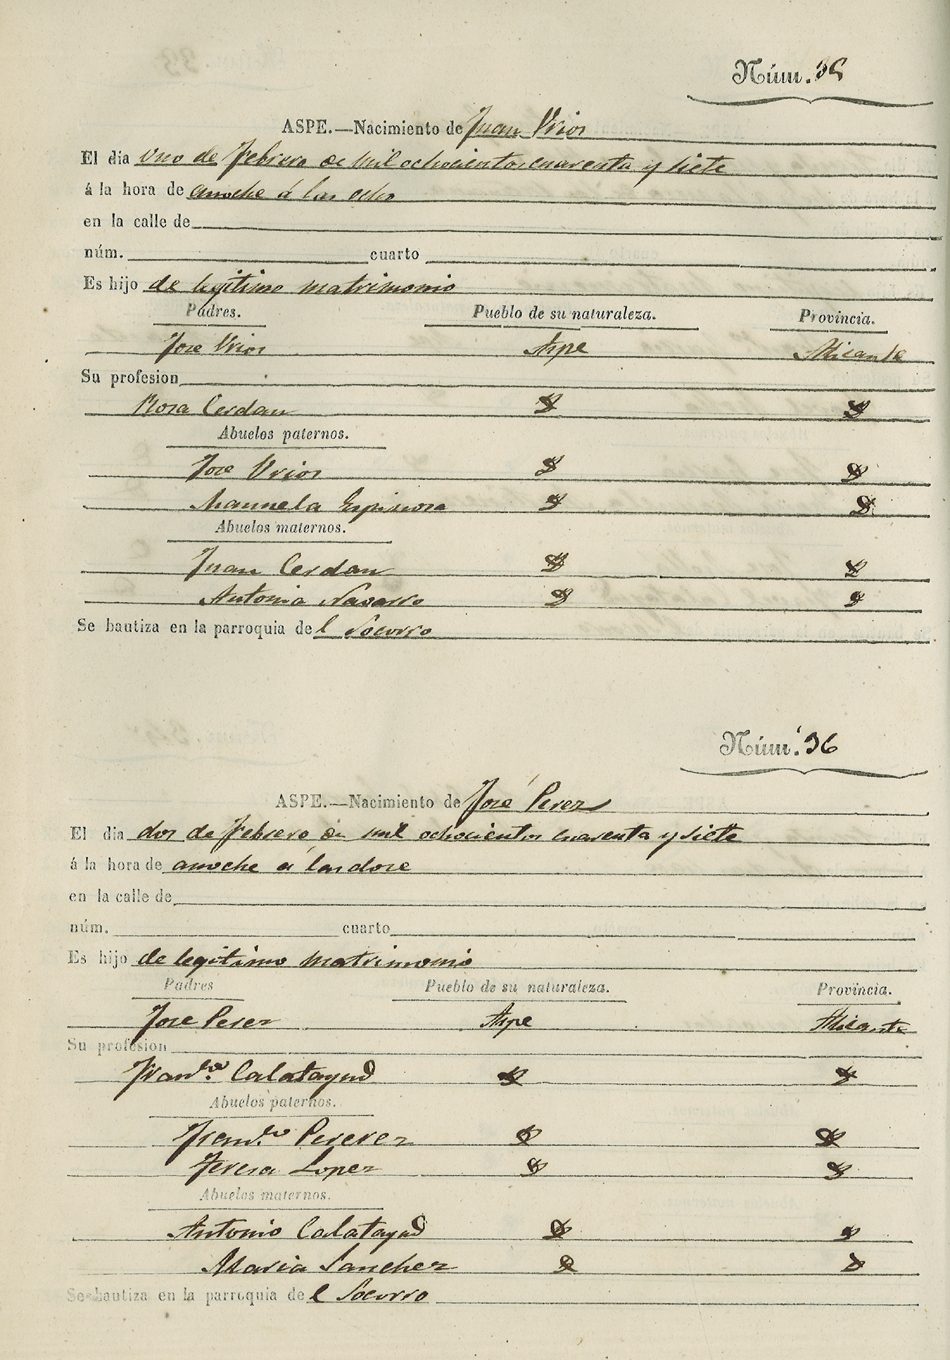 Núm. 35
ASPE.—Nacimiento de Juan Urios
El dia uno de febrero de mil ochocientos cuarenta y siete
á la hora de anoche á las ocho
en la calle de
núm. cuarto
Es hijo de legitimo matrimonio
Padres. Pueblo de su naturaleza. Provincia.
Jose Urios Aspe Alicante
Su profesion
Rosa Cerdan
Abuelos paternos.
Jose Urios
Manuela Espinosa
Abuelos maternos.
Juan Cerdan
Antonia Navarro
Se bautiza en la parroquia del Socorro
Núm. 36
ASPE.—Nacimiento de José Perez
El dia dos de febrero de mil ochocientos cuarenta y siete
á la hora de anoche á las dose
en la calle de
núm. cuarto
Es hijo de legitimo matrimonio
Padres Pueblo de su naturaleza. Provincia.
Jose Perez Aspe Alicante
Su profesion
Fran.ca Calatayud
Abuelos paternos.
Fran.co Pererez
Teresa Lopez
Abuelos maternos.
Antonio Calatayud
Maria Sanchez
Se bautiza en la parroquia del Socorro